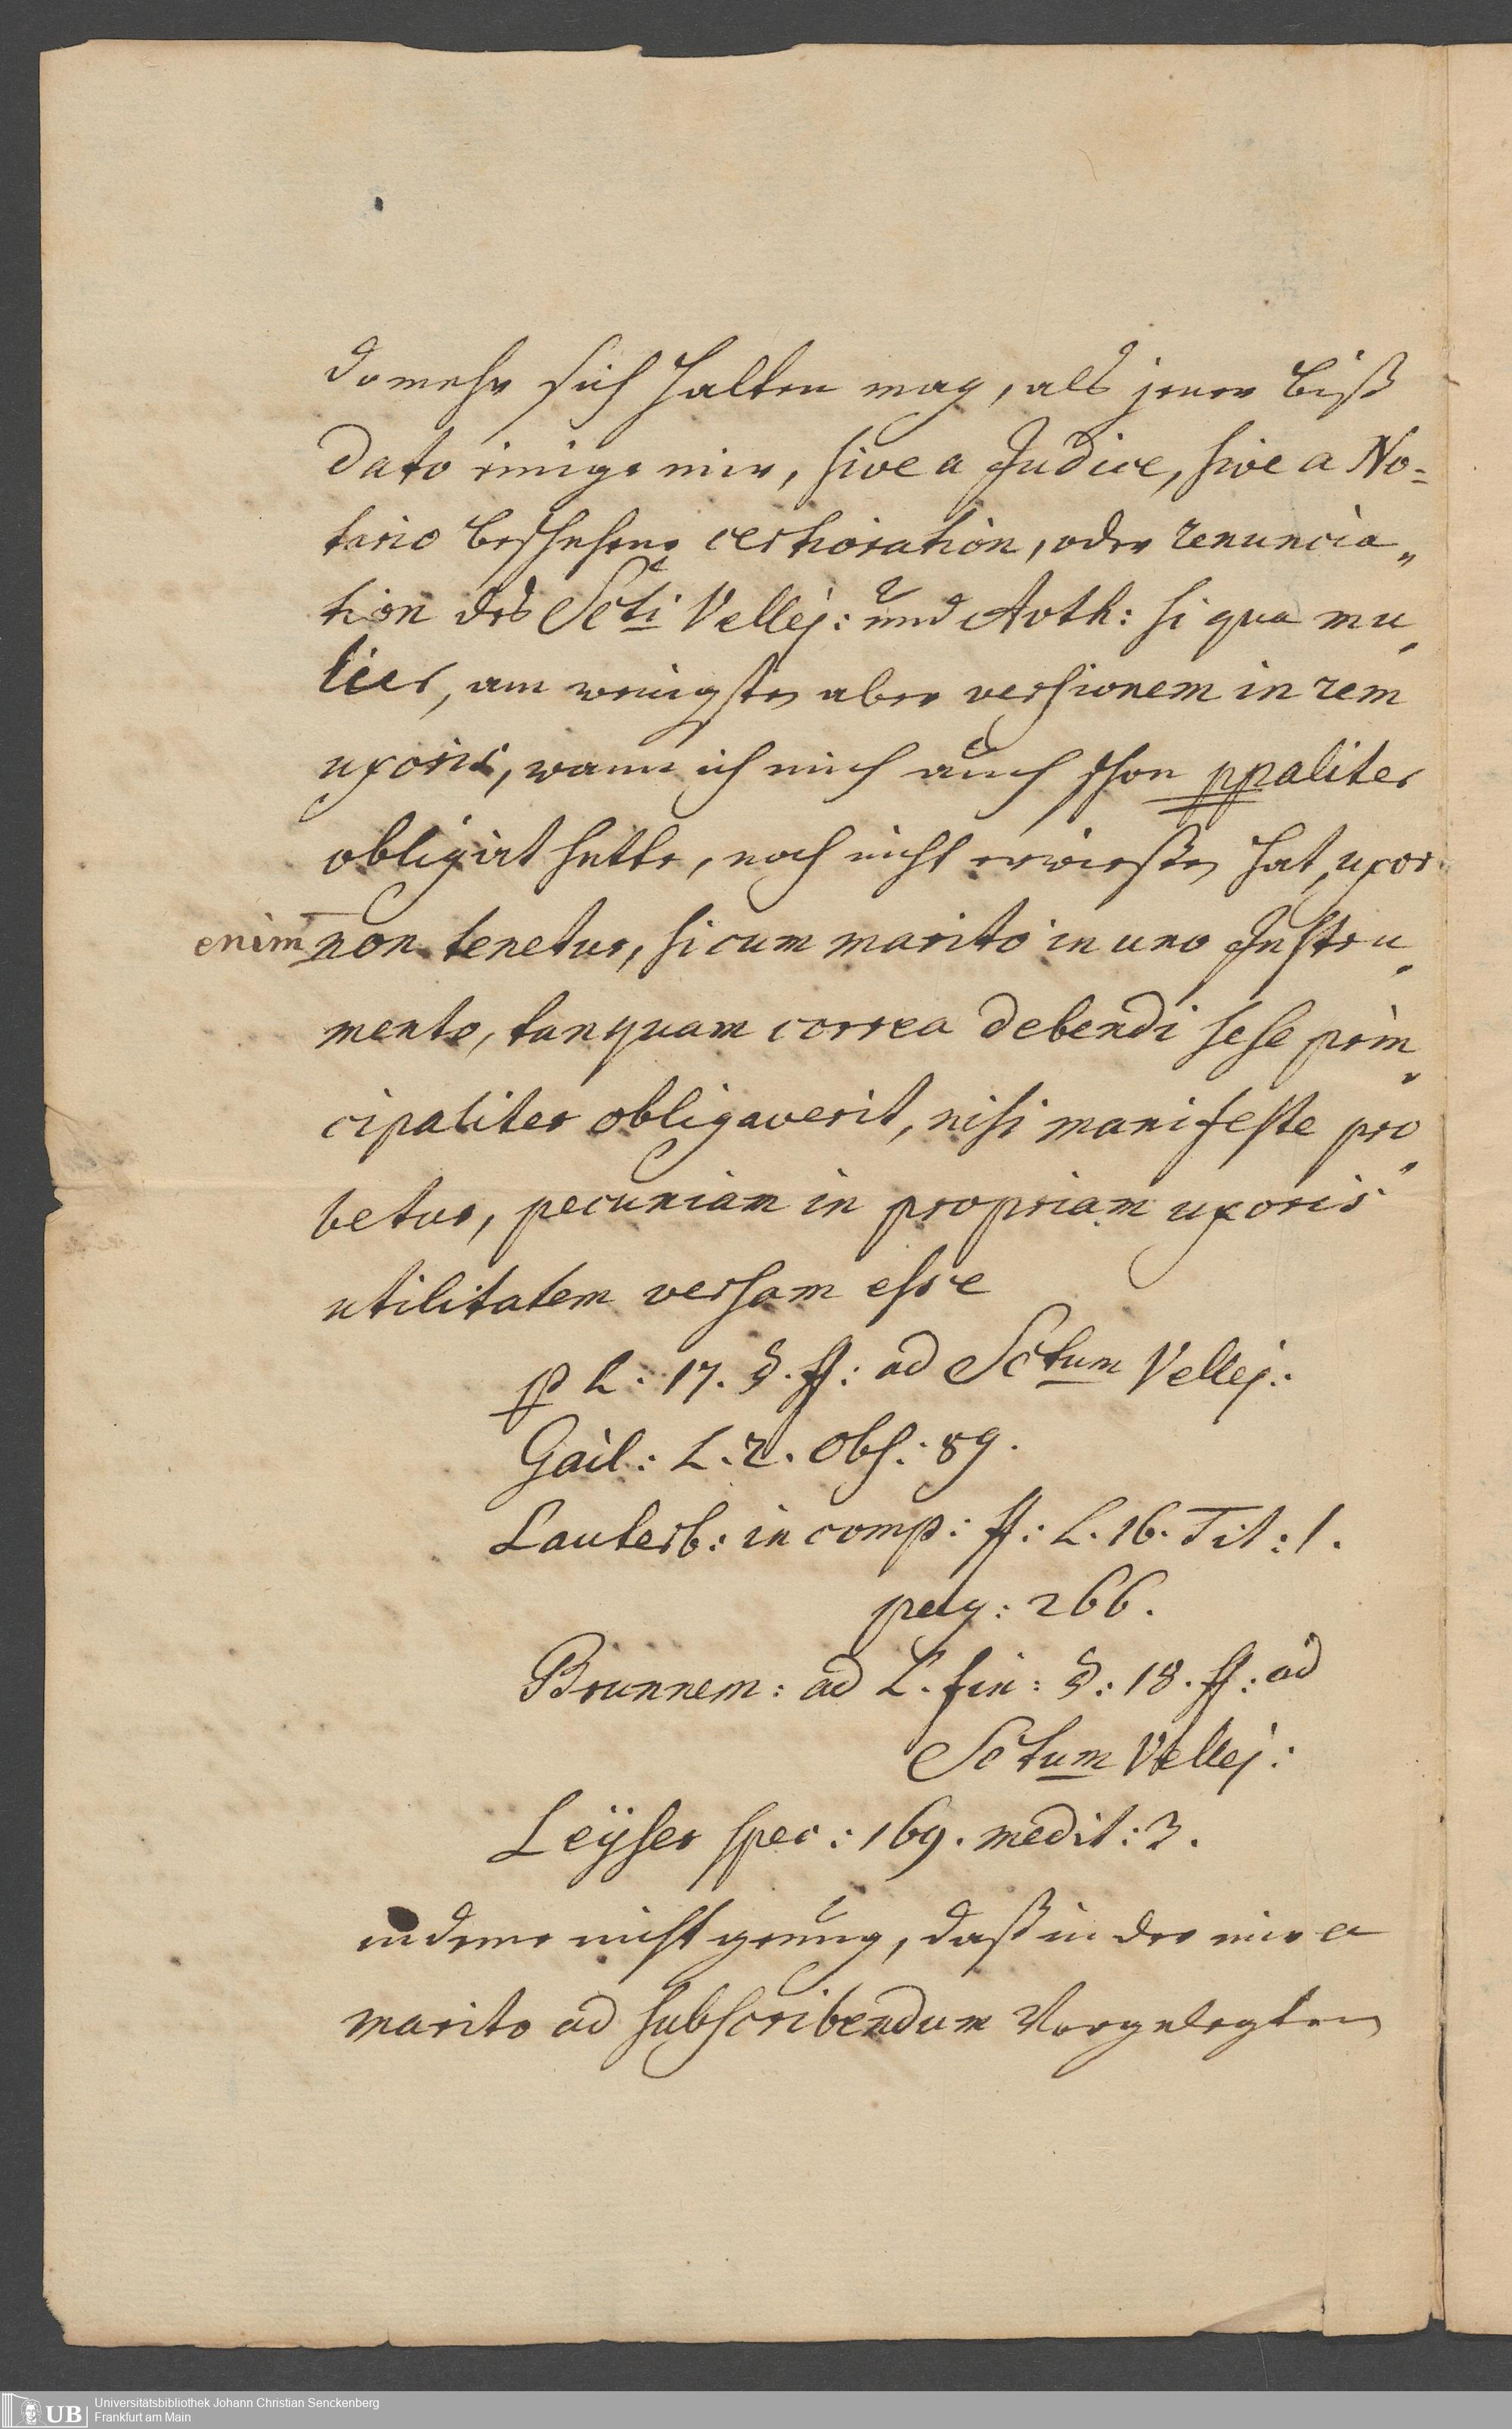 domehr sich halten mag, als jener biß
dato einige mir, sive a Judice, sive a No=
tario beschehene certioration, oder renuncia„
tion des Scti Vellej: und Auth: si qua mu„
lier, am wenigsten aber versionem in rem
uxoris, wann ich mich auch schon ppaliter
obligirt hette, noch nicht erwießen hat, uxor
enim non tenetur, si cum marito in uno Instru„
mento, tanquam correa debendi sese prin„
cipaliter obligaverit, nisi manifeste pro„
betur, pecuniam in propriam uxoris
utilitatem versam esse
p L: 17. §. ff: ad Sctum Vellej:
Gail: L. 2. Obs: 89.
Lauterb: in comp: ff: L. 16. Tit: 1.
pag: 266.
Brunnem: ad L. fin: §: 18. ff: ad
Sctum Vellej:
Leÿser spec: 169. medit: 3.
indeme nicht genug, daß in der mir a
marito ad subscribendum Vorgelegten
UB Universitätsbibliothek Johann Christian Senckenberg
Frankfurt am Main